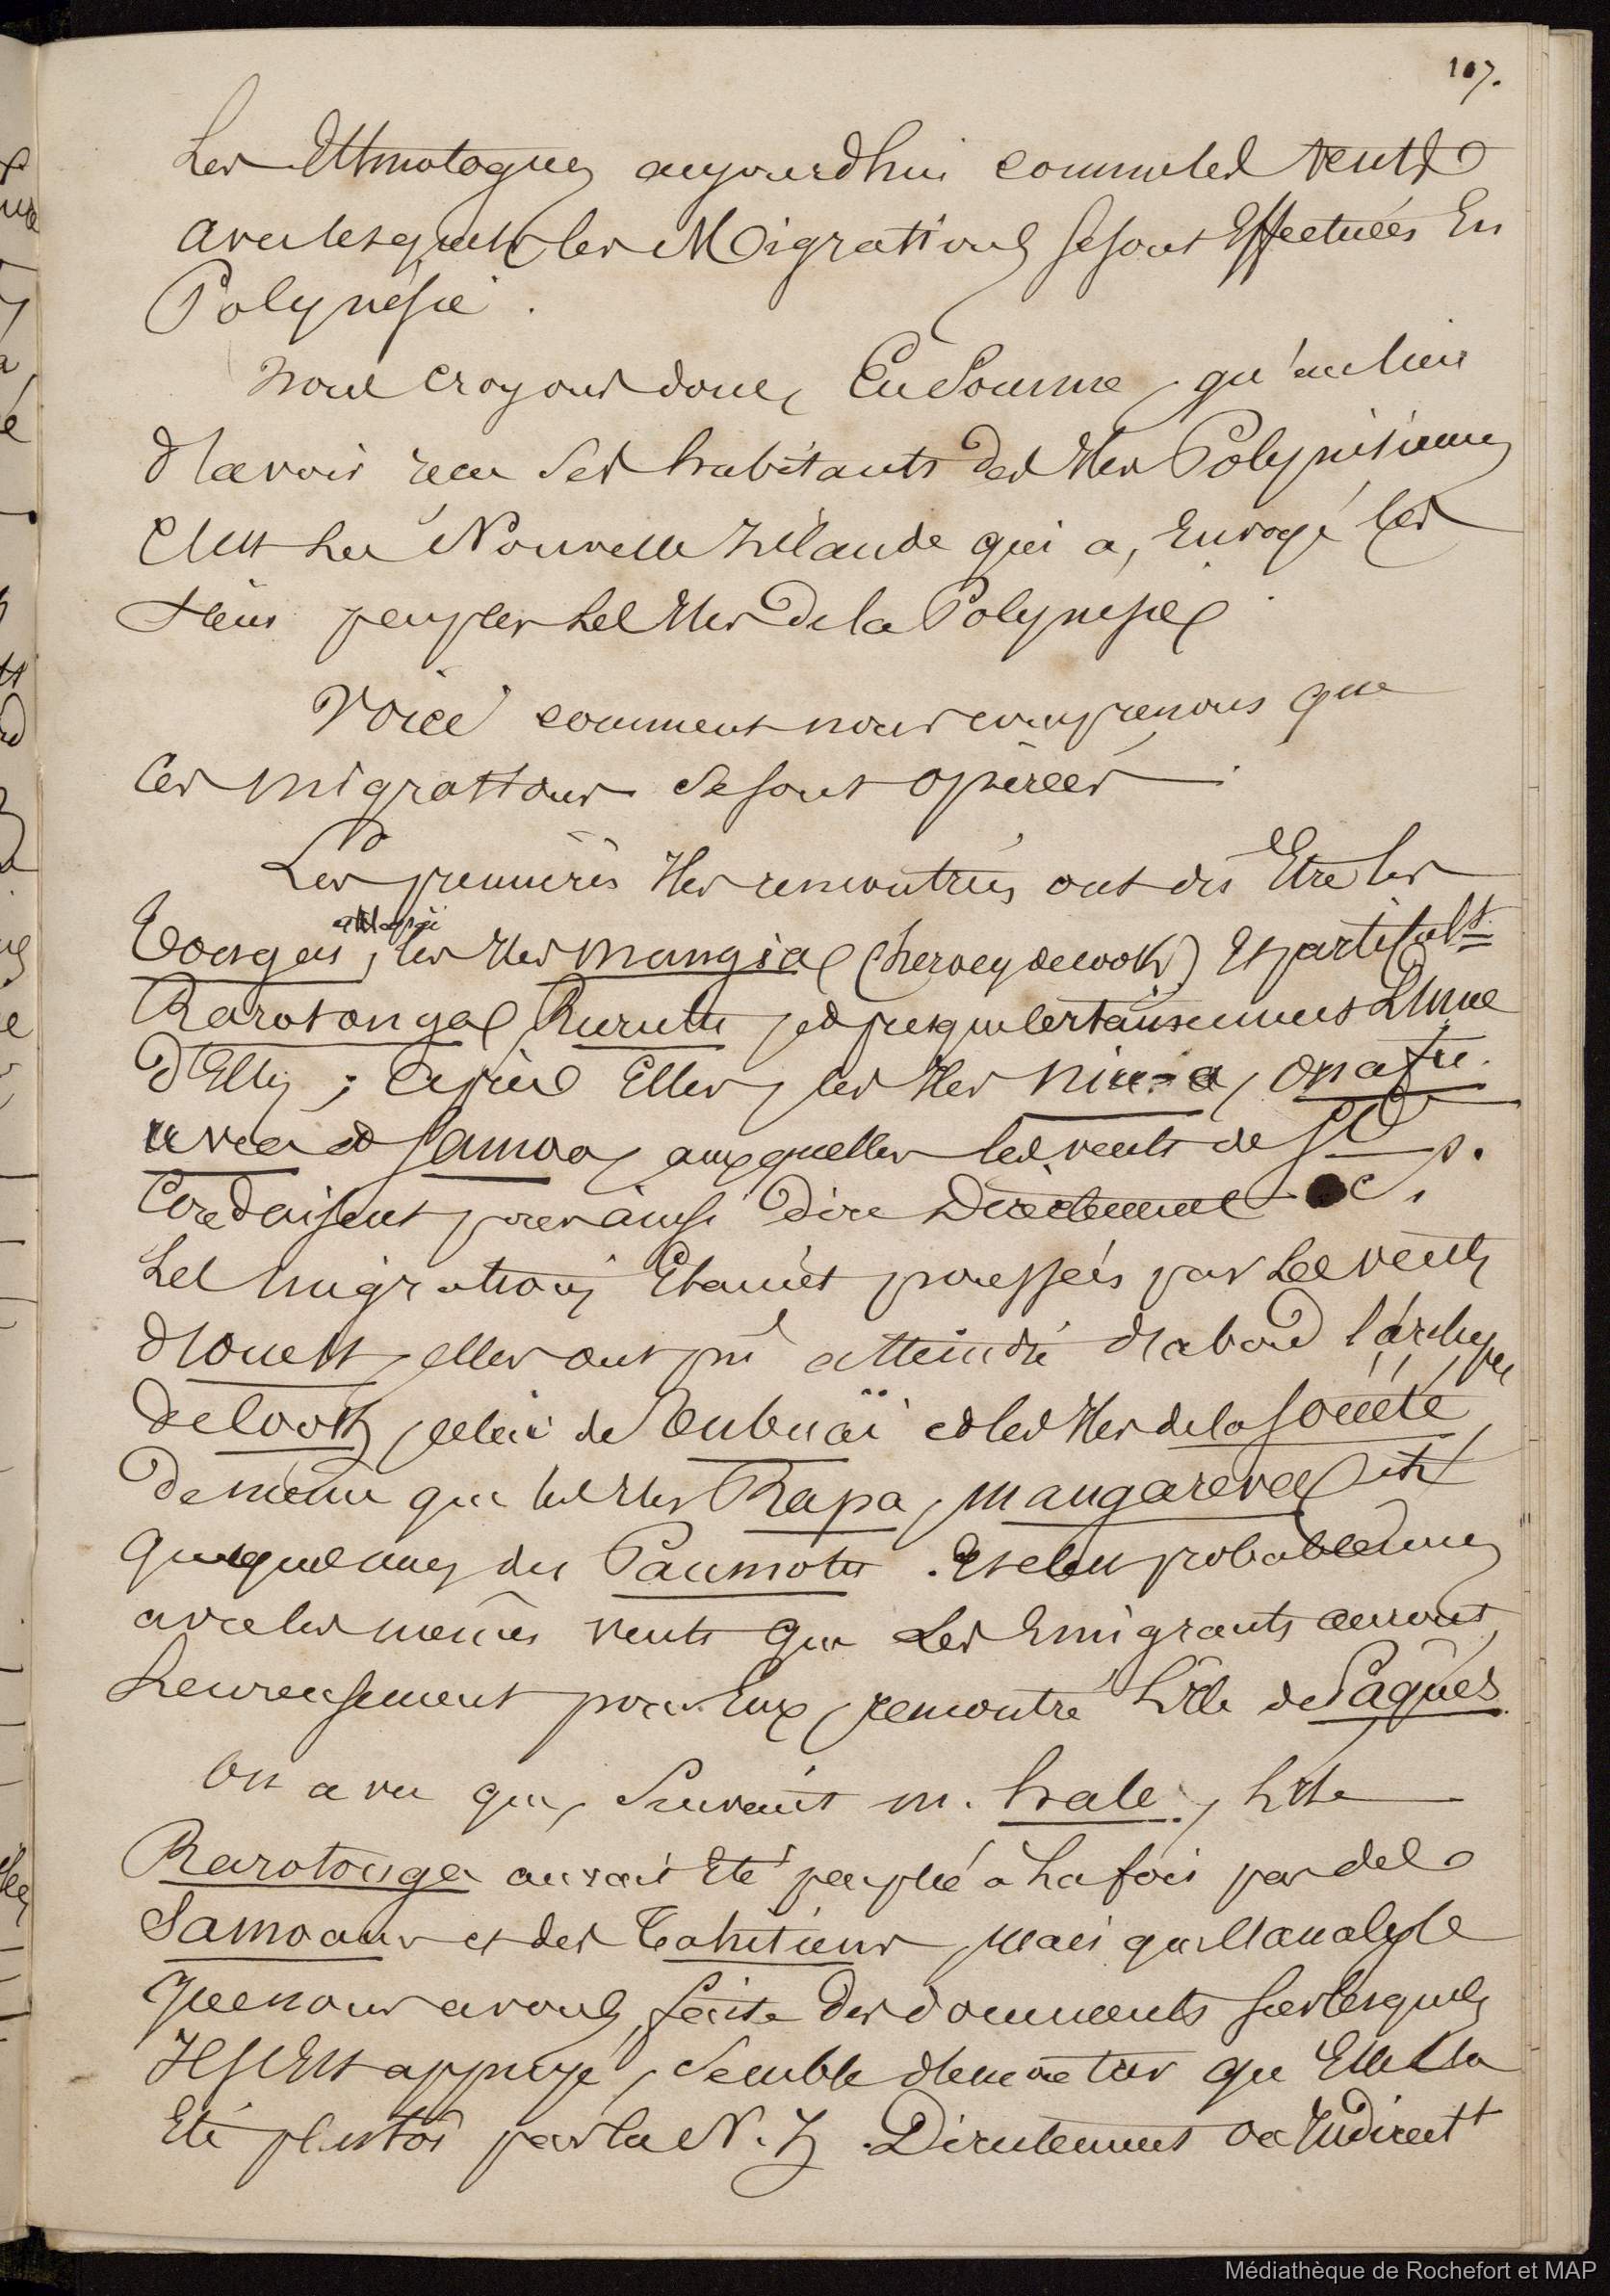 107.
Les Ethnologues aujourd'hui comme les vents
avec lesquels les Migrations se sont Effectuées En
Polynésie.
Nous croyons donc, En Somme, qu'au lieu
d'avoir reçu Ses habitants des Iles Polynésiennes
C'est La Nouvelle Zélande qui a, Envoyé les
siens peupler Les Iles De la Polynésie.
Voici comment nous comprenons que
Ces migrations Se sont opérées.
Les premières Iles rencontrées ont dû Etre les
Tongas, les Iles Mangia (hervey de cook) Et particult
Rarotonga, Rurutu, et presque certainement L'Une
d'Elles; après Elles, les Iles niu-a,
uvea et Samoa, auxquelles les vents de S.
Conduisent pour ainsi Dire Directement
Les migrations Etaient poussées par Les vents
d'ouest, elles ont pu atteindre d'abord l'archipel
de cook, celui de Tubuaï et les Iles de la Société,
De même que les Iles Rapa, Mangareva et
quelques unes des Paumotu. Et c'est probablement
avec les mêmes vents que Les Emigrants auront,
heureusement pour Eux, rencontré L'Ile de Pâques.
On a vu que, Suivant M. hale, L'Ile
Rarotonga aurait Eté peuplée à La fois par des
Samoans et des Tahitiens, Mais que l'analyse
que nous avons faite Des documents sur lesquels
Il s'Est appuyé, Semble démontrer qu'Elle l'a
Eté plutôt par la N. Z. Directement ou Indirectt
Médiathèque de Rochefort et MAP